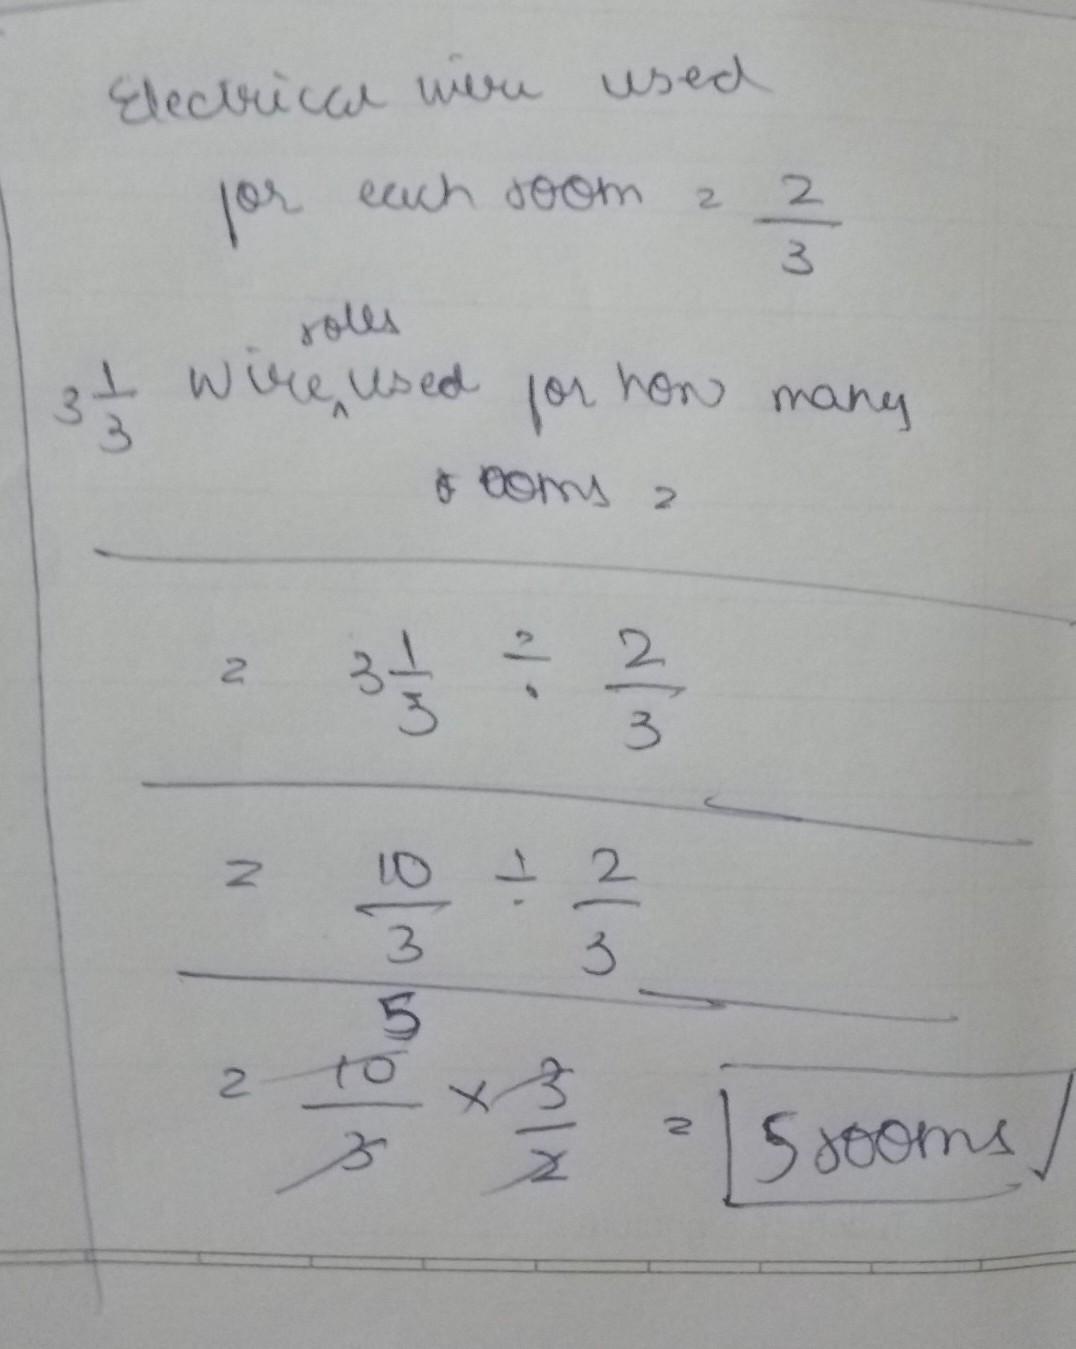 Electrical wire used
for each room = 2/3
rolls
3 1/3 Wire ^ used for how many
rooms =
= 3 1/3 ÷ 2/3
= 10/3 ÷ 2/3
5
= 10/3 × 3/2 = 5 rooms